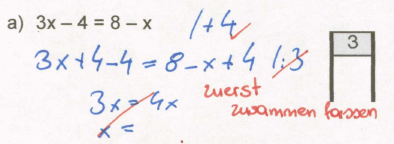 a) 3x – 4 = 8 – x /+4
3x+4-4 = 8-x+4 /:3
3x = 4x
x =
zuerst
zusammen fassen
3